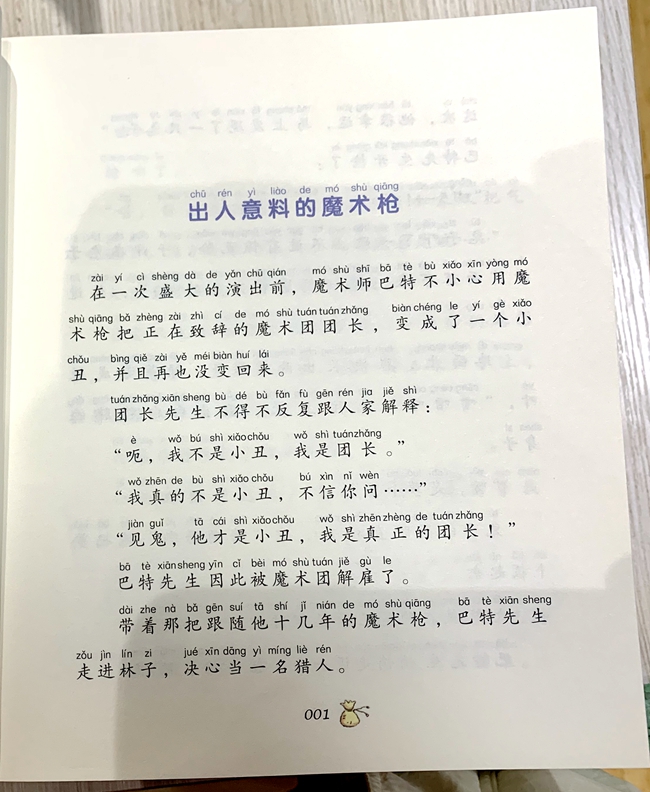 chū rén yì liào de mó shù qiāng
出人意料的魔术枪
zài yí cì shèng dà de yǎn chū qián mó shù shī bā tè bù xiǎo xīn yòng mó
在一次盛大的演出前，魔术师巴特不小心用魔
shù qiāng bǎ zhèng zài zhì cí de mó shù tuán tuán zhǎng biàn chéng le yí gè xiǎo
术枪把正在致辞的魔术团团长，变成了一个小
chǒu bìng qiě zài yě méi biàn huí lái
丑，并且再也没变回来。
tuán zhǎng xiān sheng bù dé bù fǎn fù gēn rén jia jiě shì
团长先生不得不反复跟人家解释：
è wǒ bú shì xiǎo chǒu wǒ shì tuán zhǎng
“呃，我不是小丑，我是团长。”
wǒ zhēn de bú shì xiǎo chǒu bú xìn nǐ wèn
“我真的不是小丑，不信你问……”
jiàn guǐ tā cái shì xiǎo chǒu wǒ shì zhēn zhèng de tuán zhǎng
“见鬼，他才是小丑，我是真正的团长！”
bā tè xiān sheng yīn cǐ bèi mó shù tuán jiě gù le
巴特先生因此被魔术团解雇了。
dài zhe nà bǎ gēn suí tā shí jǐ nián de mó shù qiāng bā tè xiān sheng
带着那把跟随他十几年的魔术枪，巴特先生
zǒu jìn lín zi jué xīn dāng yì míng liè rén
走进林子，决心当一名猎人。
001